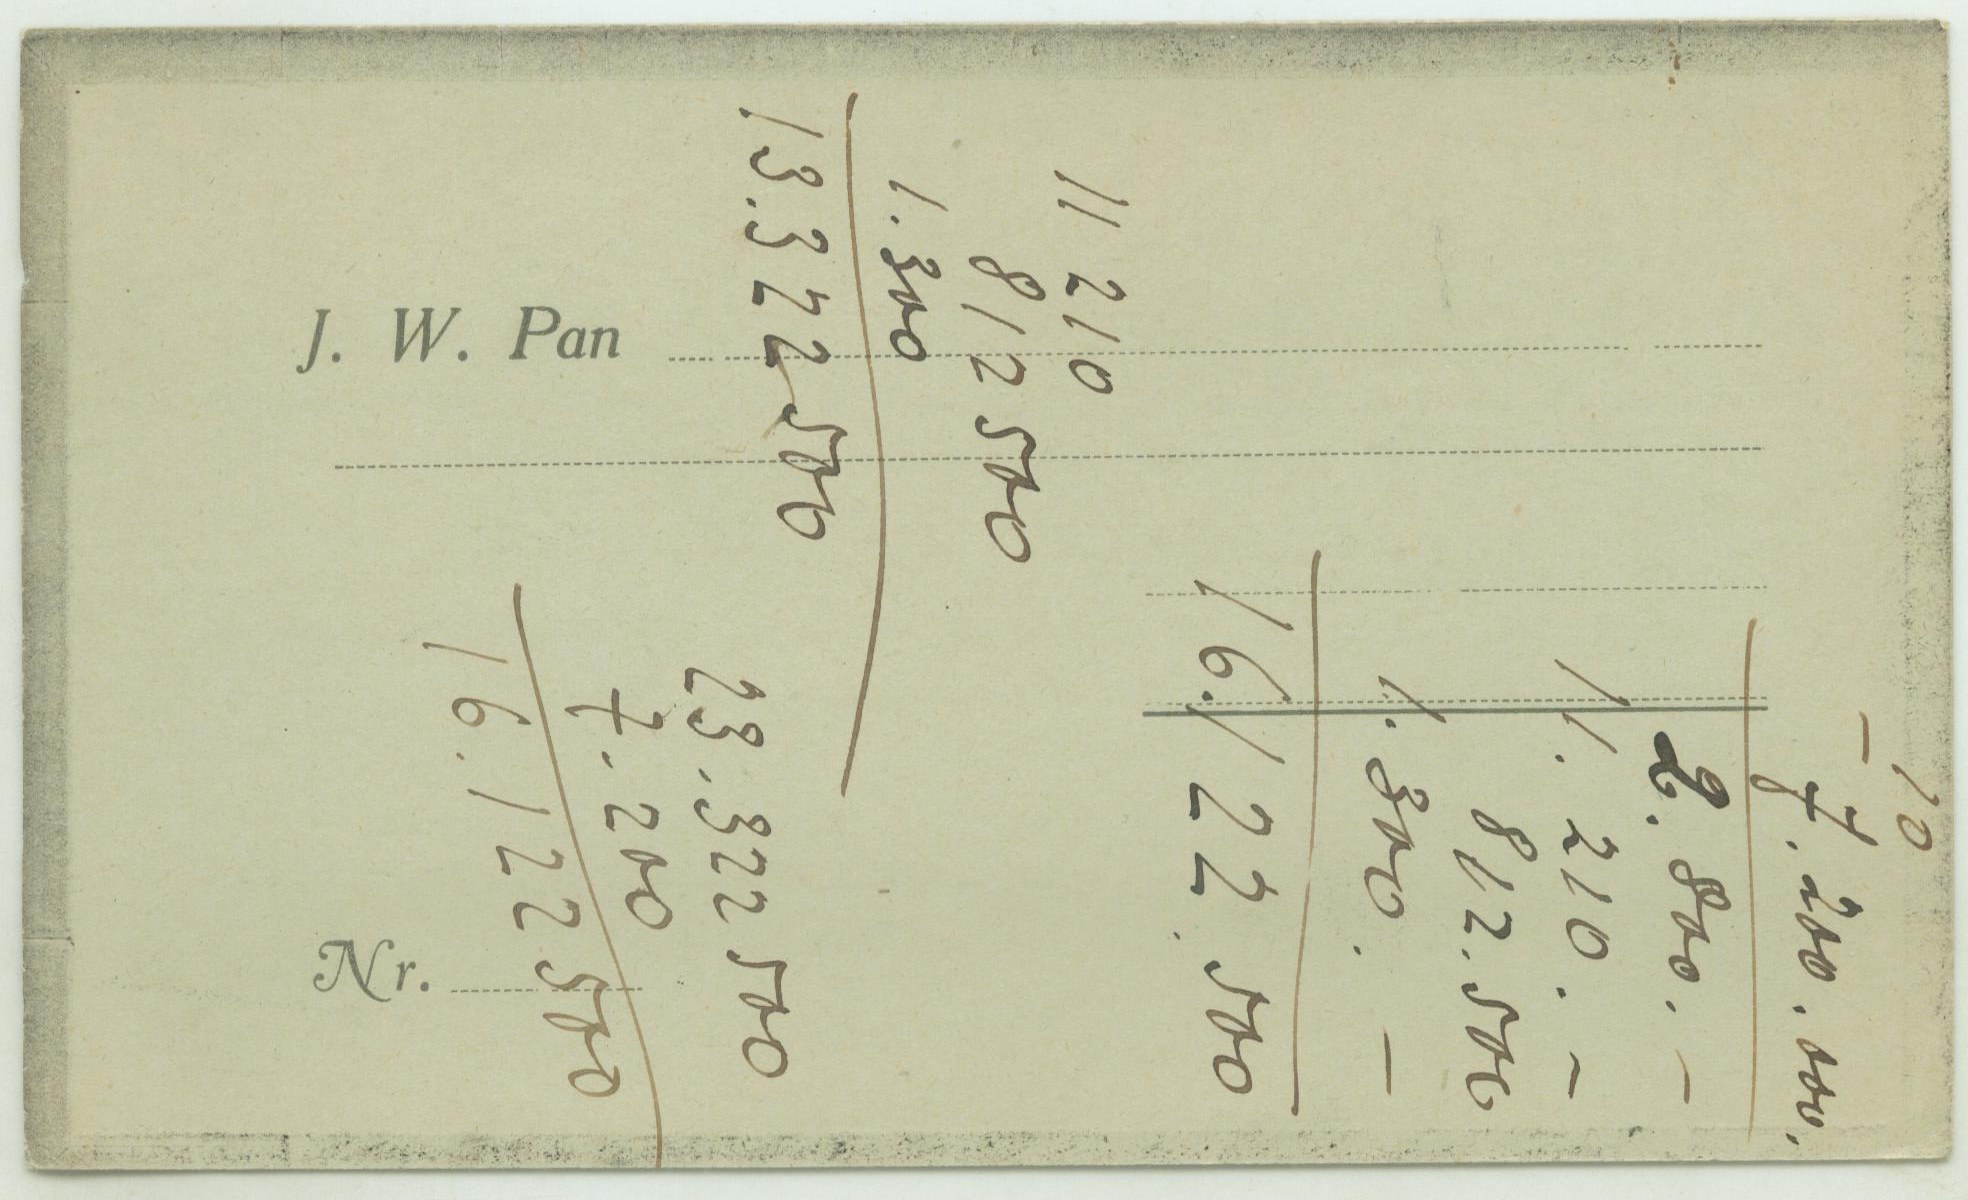 J. W. Pan
Nr.
11 210
812 500
1.300
13.322 500
10
- 7.200.000.
2.800.-
11.210.-
812.500
1.300.-
16.122.500
23.322 500
7.200
16.122 500